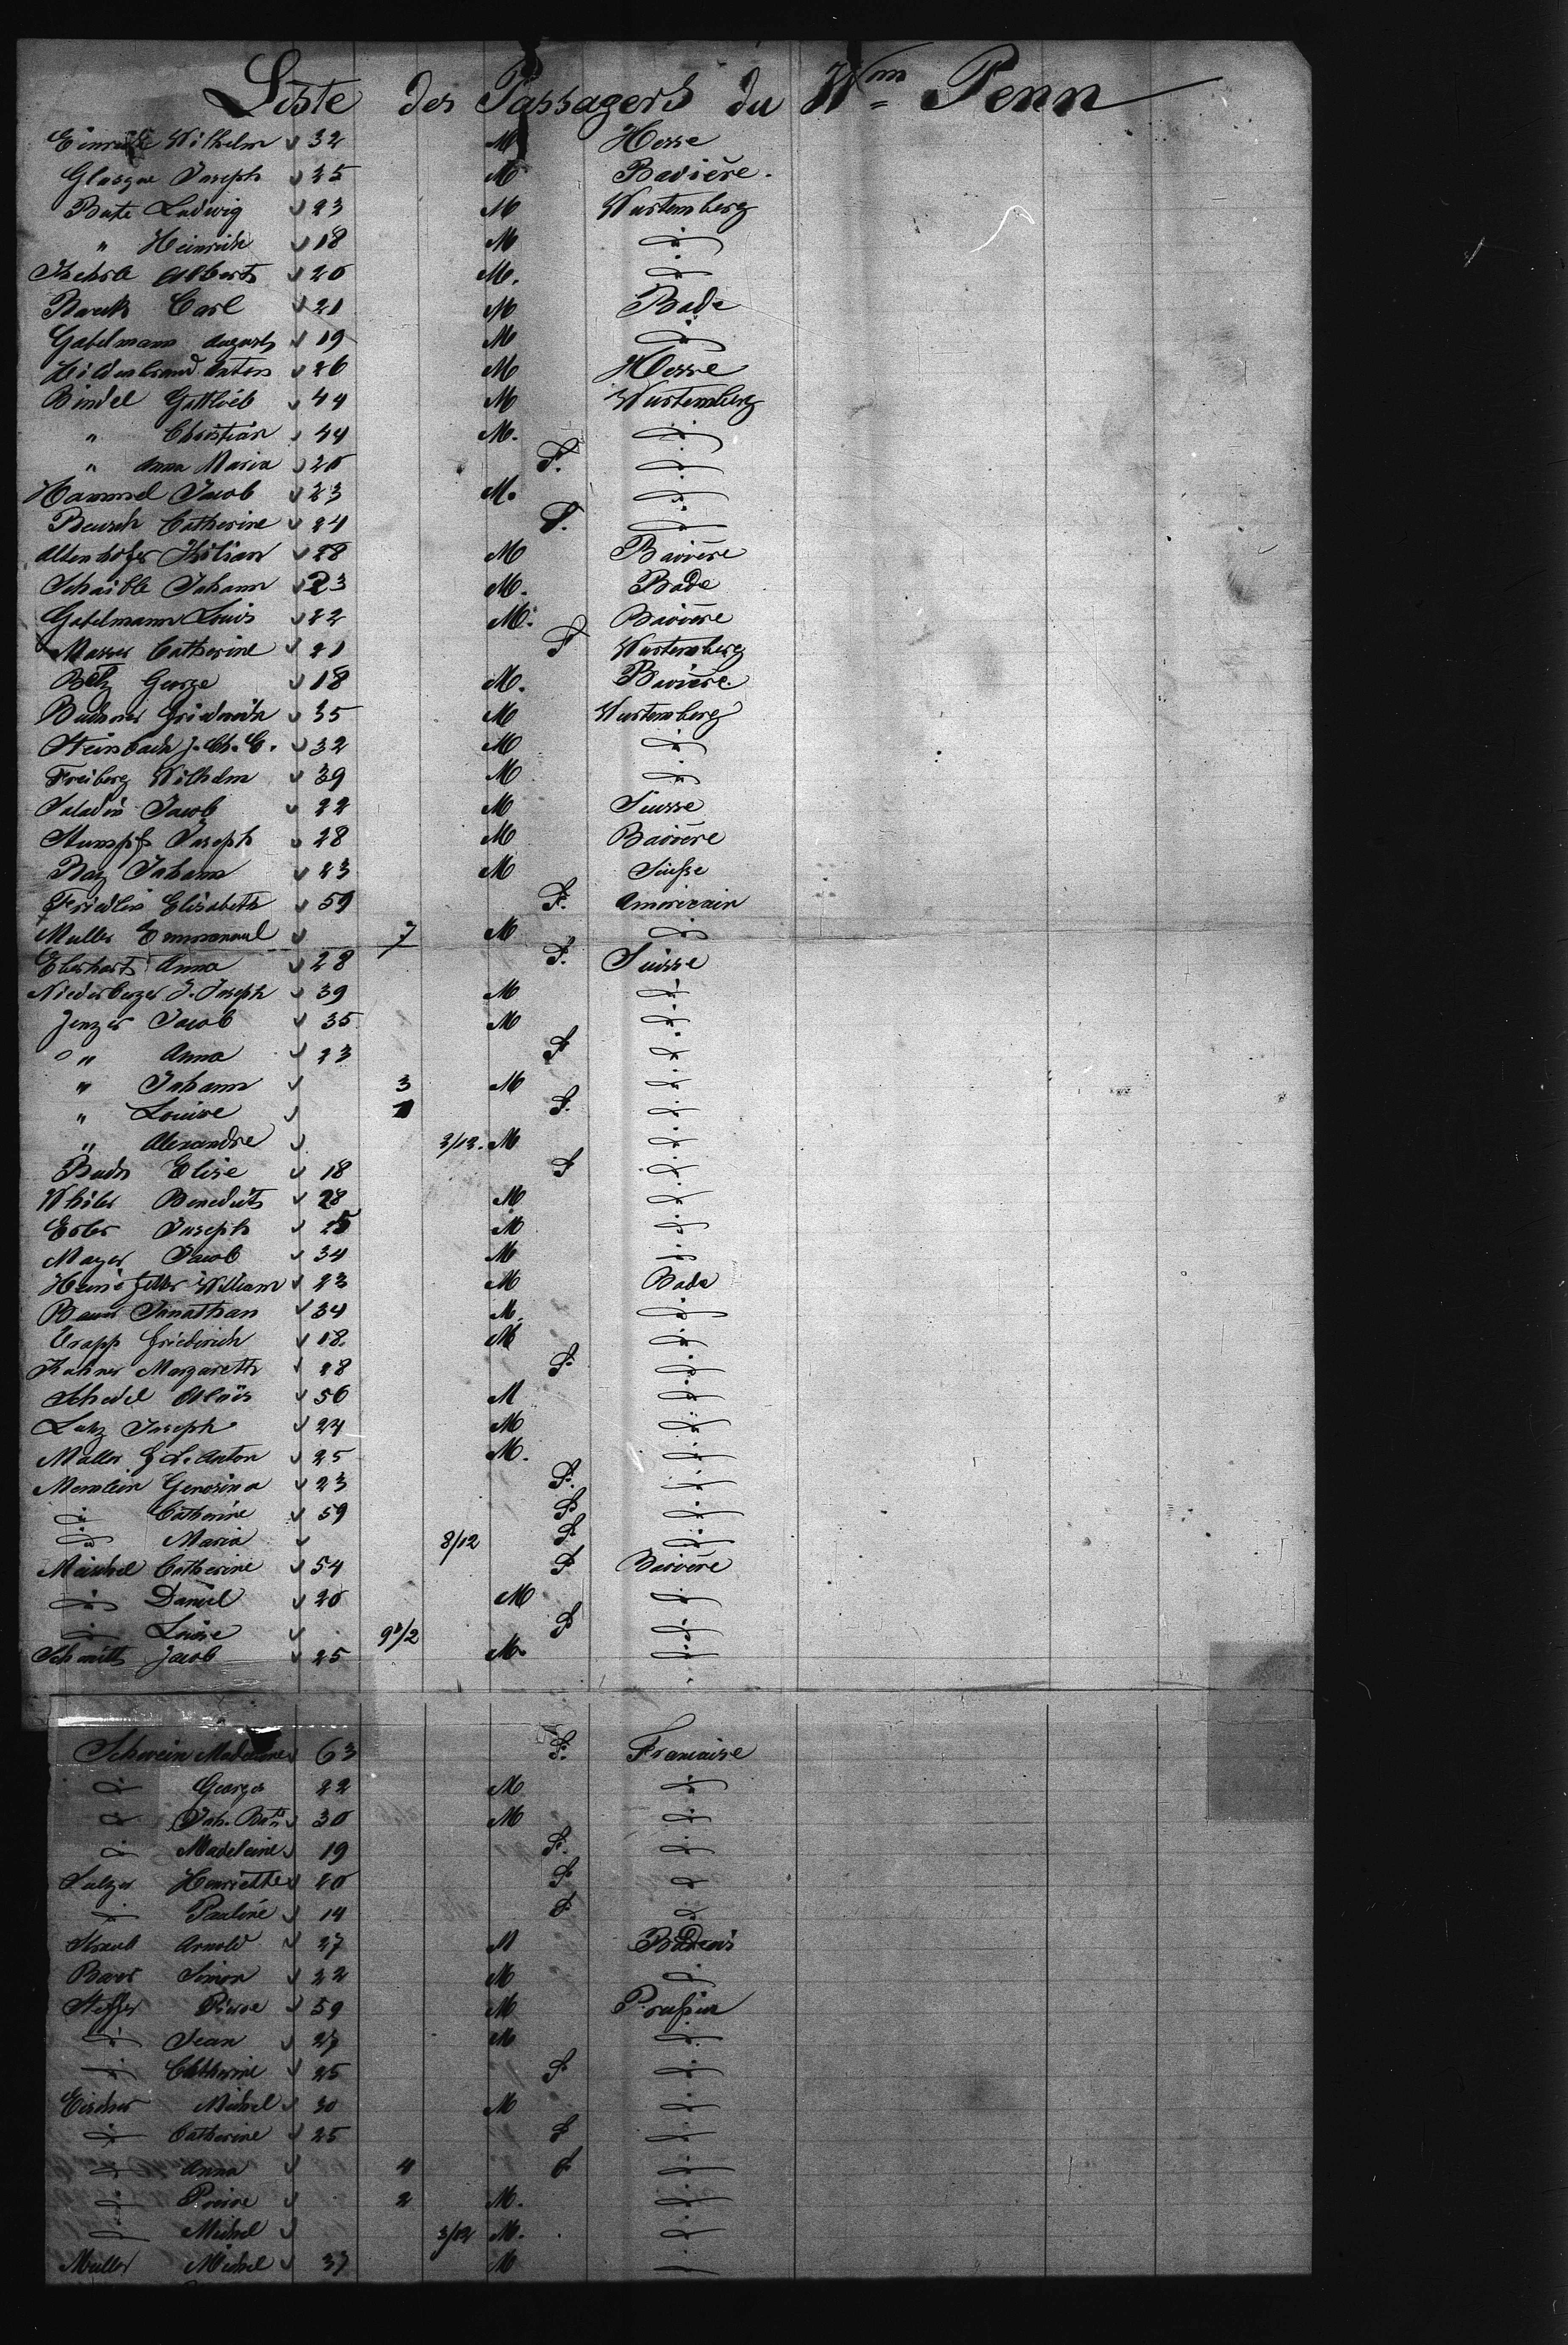 Liste des Passagers du Wm Penn
Wilhelm 32 M Hesse
Joseph 25 M Bavière.
Ludwig 23 M Wurtemberg
" Heinrich 18 M d
Albert 20 M. d
Carl 21 M Bade
Gabelmann August 19 M d
Hildenbrand Anton 26 M Hesse
Bindel Gottlieb 44 M Wurtemberg
" Christian 44 M. d
" Anna Maria 20 F. d
Hammel Jacob 23 M. d
Catherine 24 F. d
Altenhofer Kilian 28 M Bavière
Schaible Johann 23 M. Bade
Gabelmann Louis 22 M. Bavière
Catherine 21 F Wurtemberg
Betz George 18 M. Bavière
Friedrich 35 M Wurtemberg
Steinbach J. Ch. G. 32 M d
Freiberg Wilhelm 39 M d
Saladin Jacob 22 M Suisse
Stumpf Joseph 28 M Bavière
Johann 23 M Suisse
Friedlin Elisabeth 59 F. Americain
Muller Emmanuel 7 M d
Eberhart Anna 28 F. Suisse
Niederberger J. Joseph 39 M d
Jenzer Jacob 35 M d
" Anna 23 F d
" Johann 3 M d
" Louise 1 F. d
" Alexandre 3/12. M d
Elise 18 F d
Benedict 28 M d
Joseph 25 M d
Mayer Jacob 34 M d
William 23 M Bade
Jonathan 34 M. d
Trapp Friederich 18. M d
Margareth 28 F d
Schedel Alois 56 M d
Lutz Joseph 24 M d
Anton 25 M. d
23 F. d
d Catherine 59 F d
d Maria 8/12 F d
Catherine 54 F Bavière
d Daniel 20 M d
d Louise 9 1/2 F d
Schmitt Jacob 25 M. d
Schwein Madeleine 63 F. Francaise
d George 22 M d
d Joh. Bat. 30 M d
d Madeleine 19 F. d
Salzer Henriette 20 F d
d Pauline 14 F d
Straub Arnold 27 M Badois
Simon 22 M d
Pierre 59 M Prussien
d Jean 27 M d
d Catherine 25 F d
Michel 30 M d
d Catherine 25 F d
d Anna 4 F d
d Pierre 2 M. d
d Michel 3/12 M. d
Muller Michel 37 M d